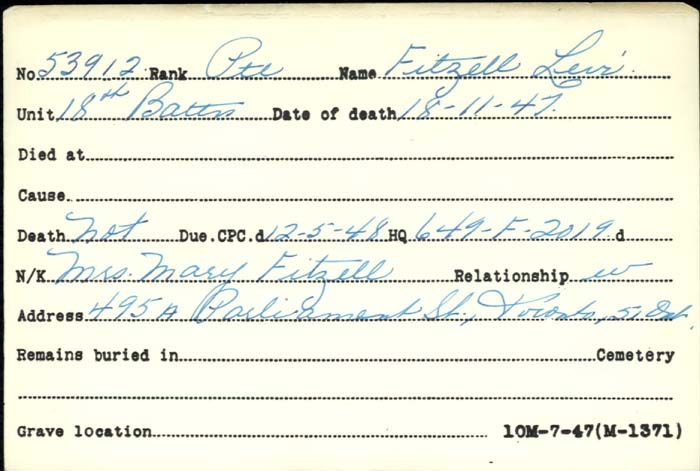 No 53912 Rank Pte Name Fitzell Levi
Unit 18th Battn Date of death 18-11-47.
Died at
Cause
Death Not Due. CPC. d 12-5-48 HQ 649-F-2019 d
N/K Mrs. Mary Fitzell Relationship w
Address 495A Parliament St., Toronto, 5, Ont.
Remains buried in Cemetery
Grave location 10M-7-47(M-1371)